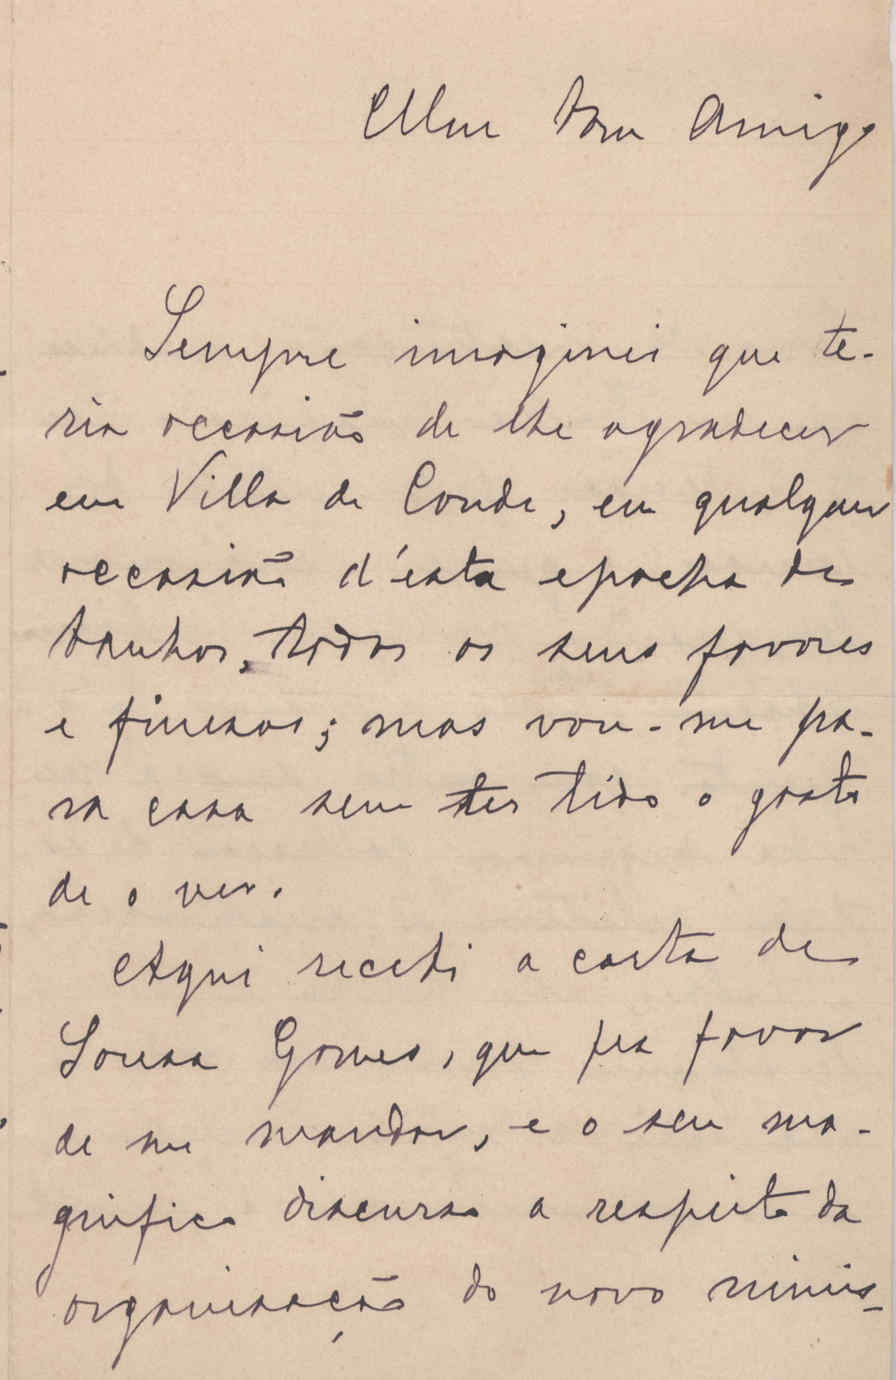 Meu bom Amigo
Sempre imaginei que te-
ria occasião de lhe agradecer
em Villa de Conde, em qualquer
occasião d'esta epocha de
banhos, todos os seus favores
e finesas; mas vou-me pa-
ra casa sem ter tido o gosto
de o ver.
Aqui recebi a carta de
Sousa Gomes, que fez favor
de me mandar, e o seu ma-
gnifico discurso a respeito da
organisação do novo minis-